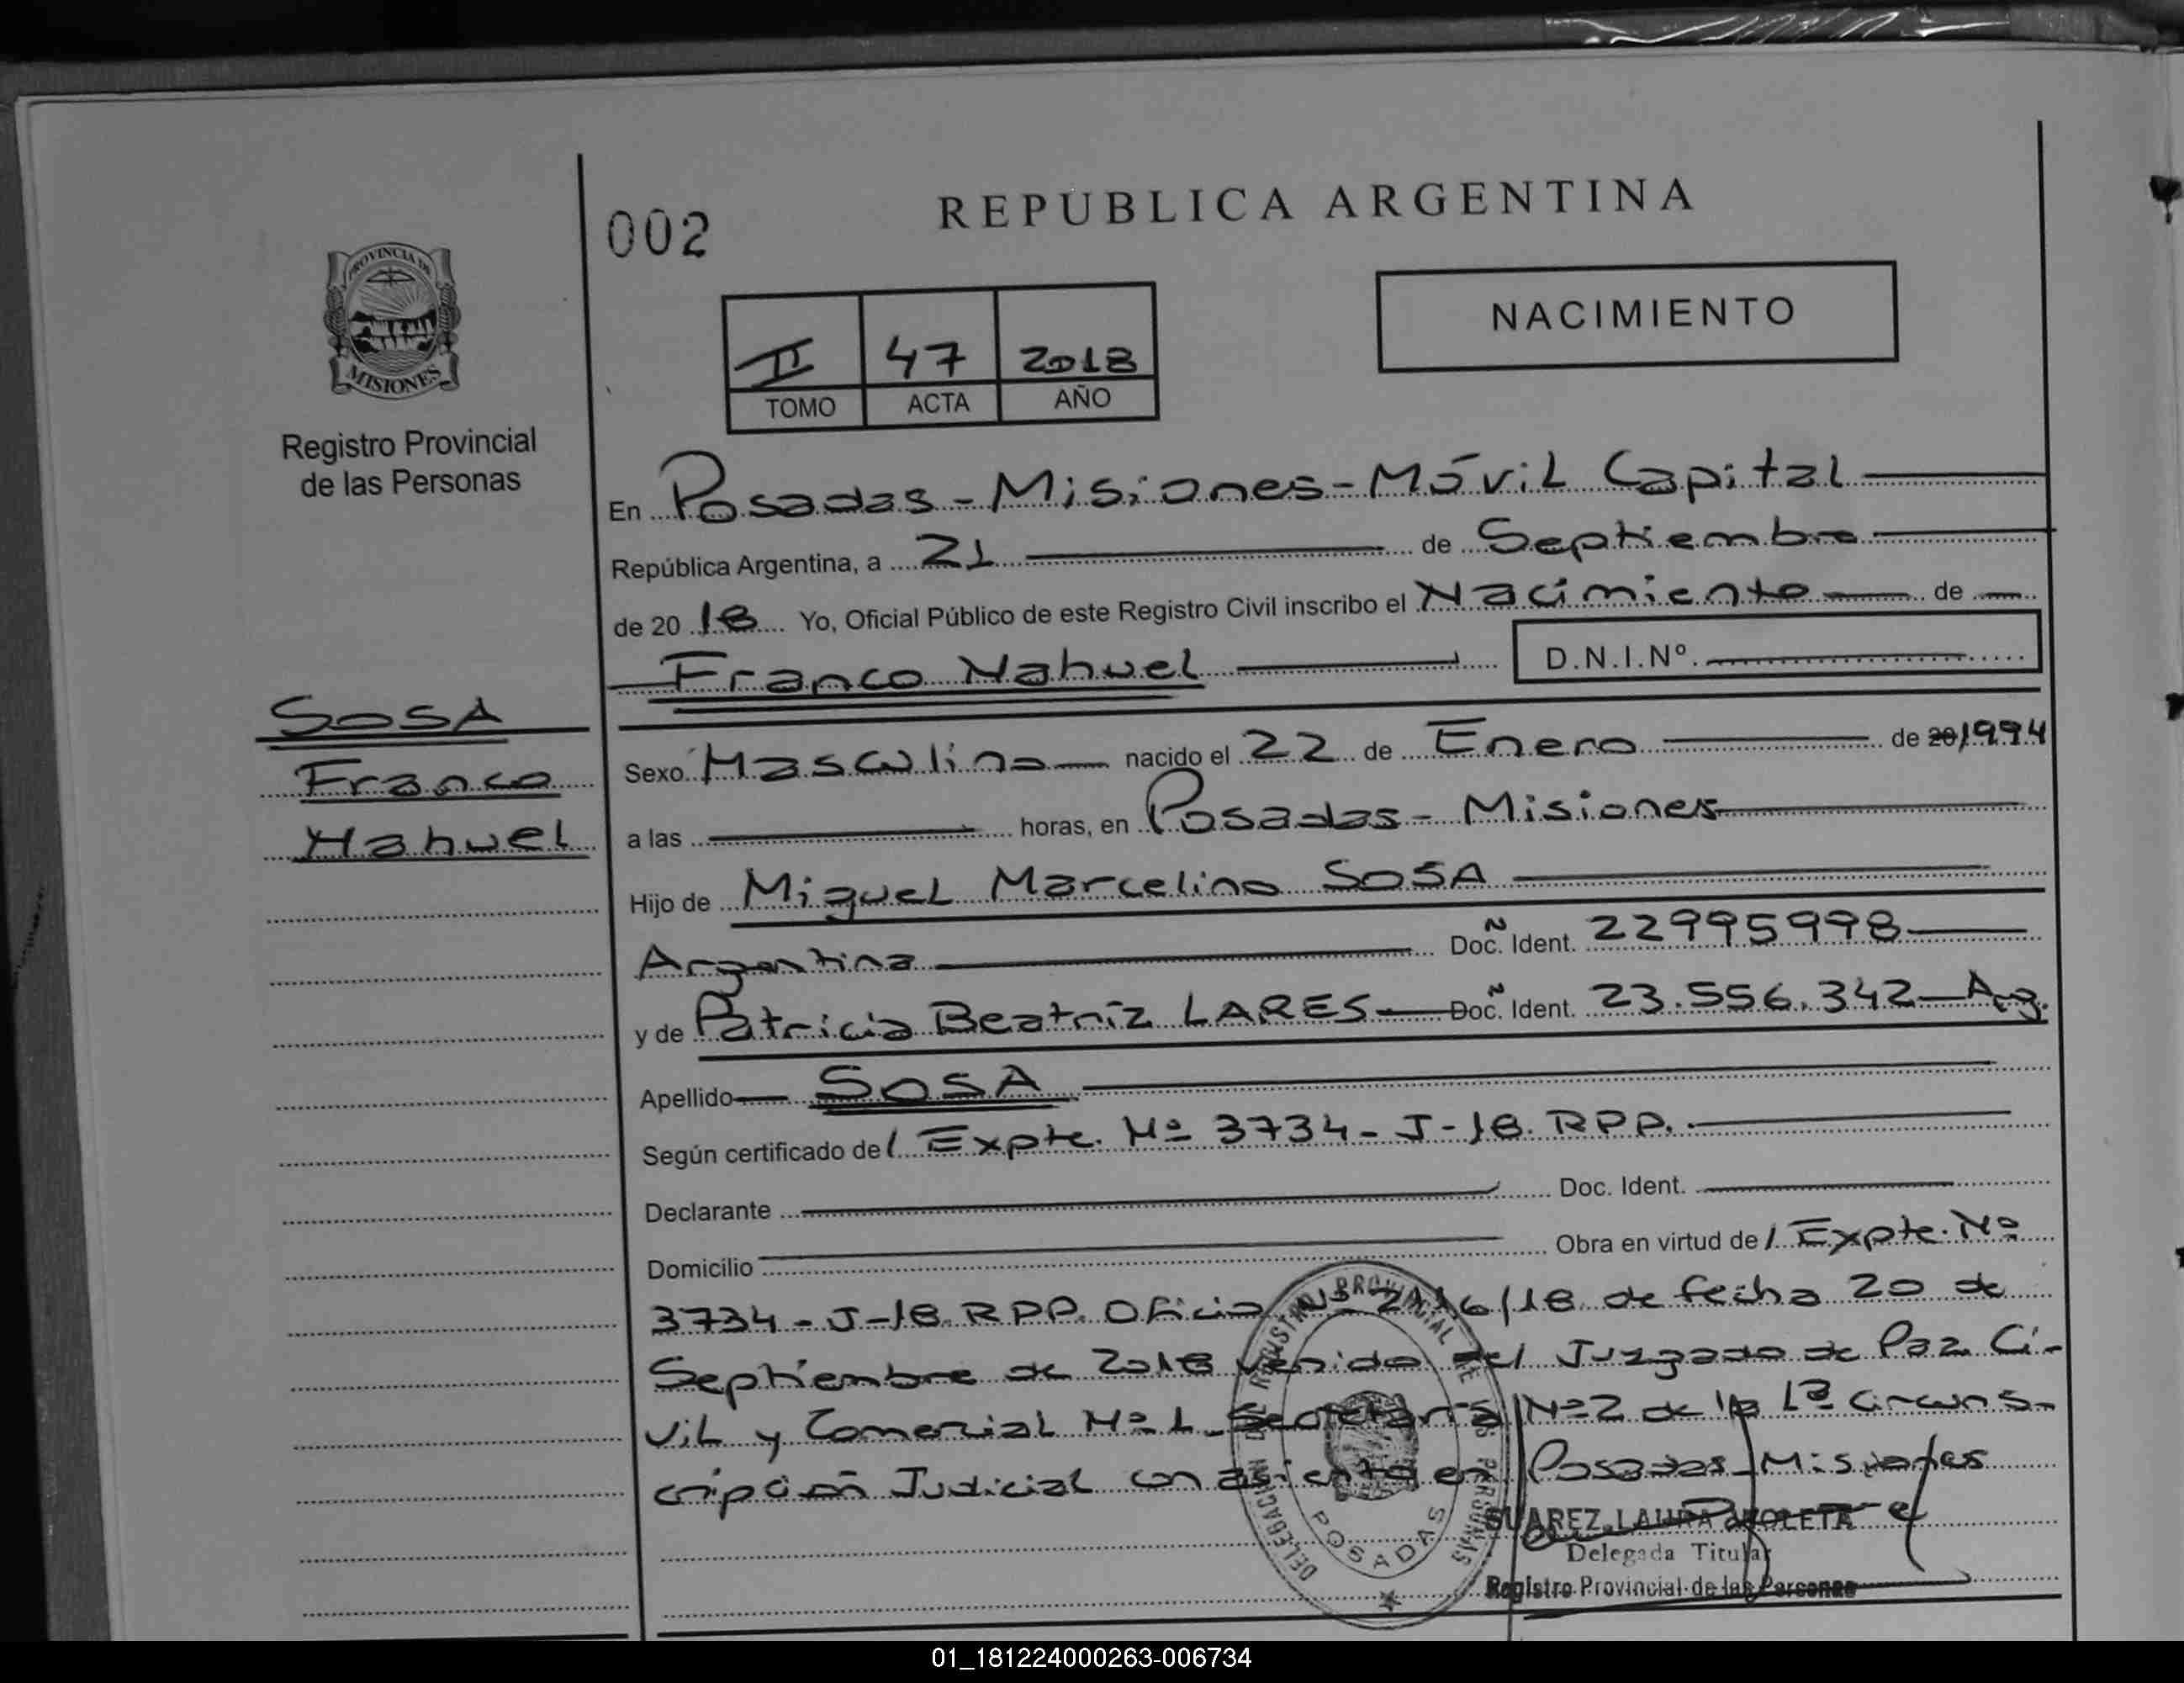 REPÚBLICA ARGENTINA
002
PROVINCIA DE
MISIONES
Registro Provincial
de las Personas
NACIMIENTO
II 47 2018
TOMO ACTA AÑO
En Posadas - Misiones - Móvil Capital
República Argentina, a 21 de Septiembre
de 20 18 Yo, Oficial Público de este Registro Civil inscribo el Nacimiento de
Franco Nahuel D.N.I.Nº.
SOSA
Franco
Nahuel
Sexo Masculino nacido el 22 de Enero de 20 1994
a las horas, en Posadas - Misiones
Hijo de Miguel Marcelino SOSA
Argentina Doc. Ident. 22995998
y de Patricia Beatriz LARES Doc. Ident. 23.556.342 Arg.
Apellido SOSA
Según certificado de / Expte. Nº 3734 - J - 18. RPP.
Declarante Doc. Ident.
Domicilio Obra en virtud de / Expte. Nº
3734 - J - 18. RPP. Oficio Nº /18 de fecha 20 de
Septiembre de 2018 venido del Juzgado de Paz Ci-
vil y Comercial Nº 1 - Secretaría Nº 2 de la 1ª Circuns-
cripción Judicial con asiento en Posadas - Misiones
DELEGACIÓN DEL REGISTRO PROVINCIAL DE LAS PERSONAS
POSADAS
SUAREZ, LAURA VIOLETA
Delegada Titular
Registro Provincial de las Personas
01_181224000263-006734